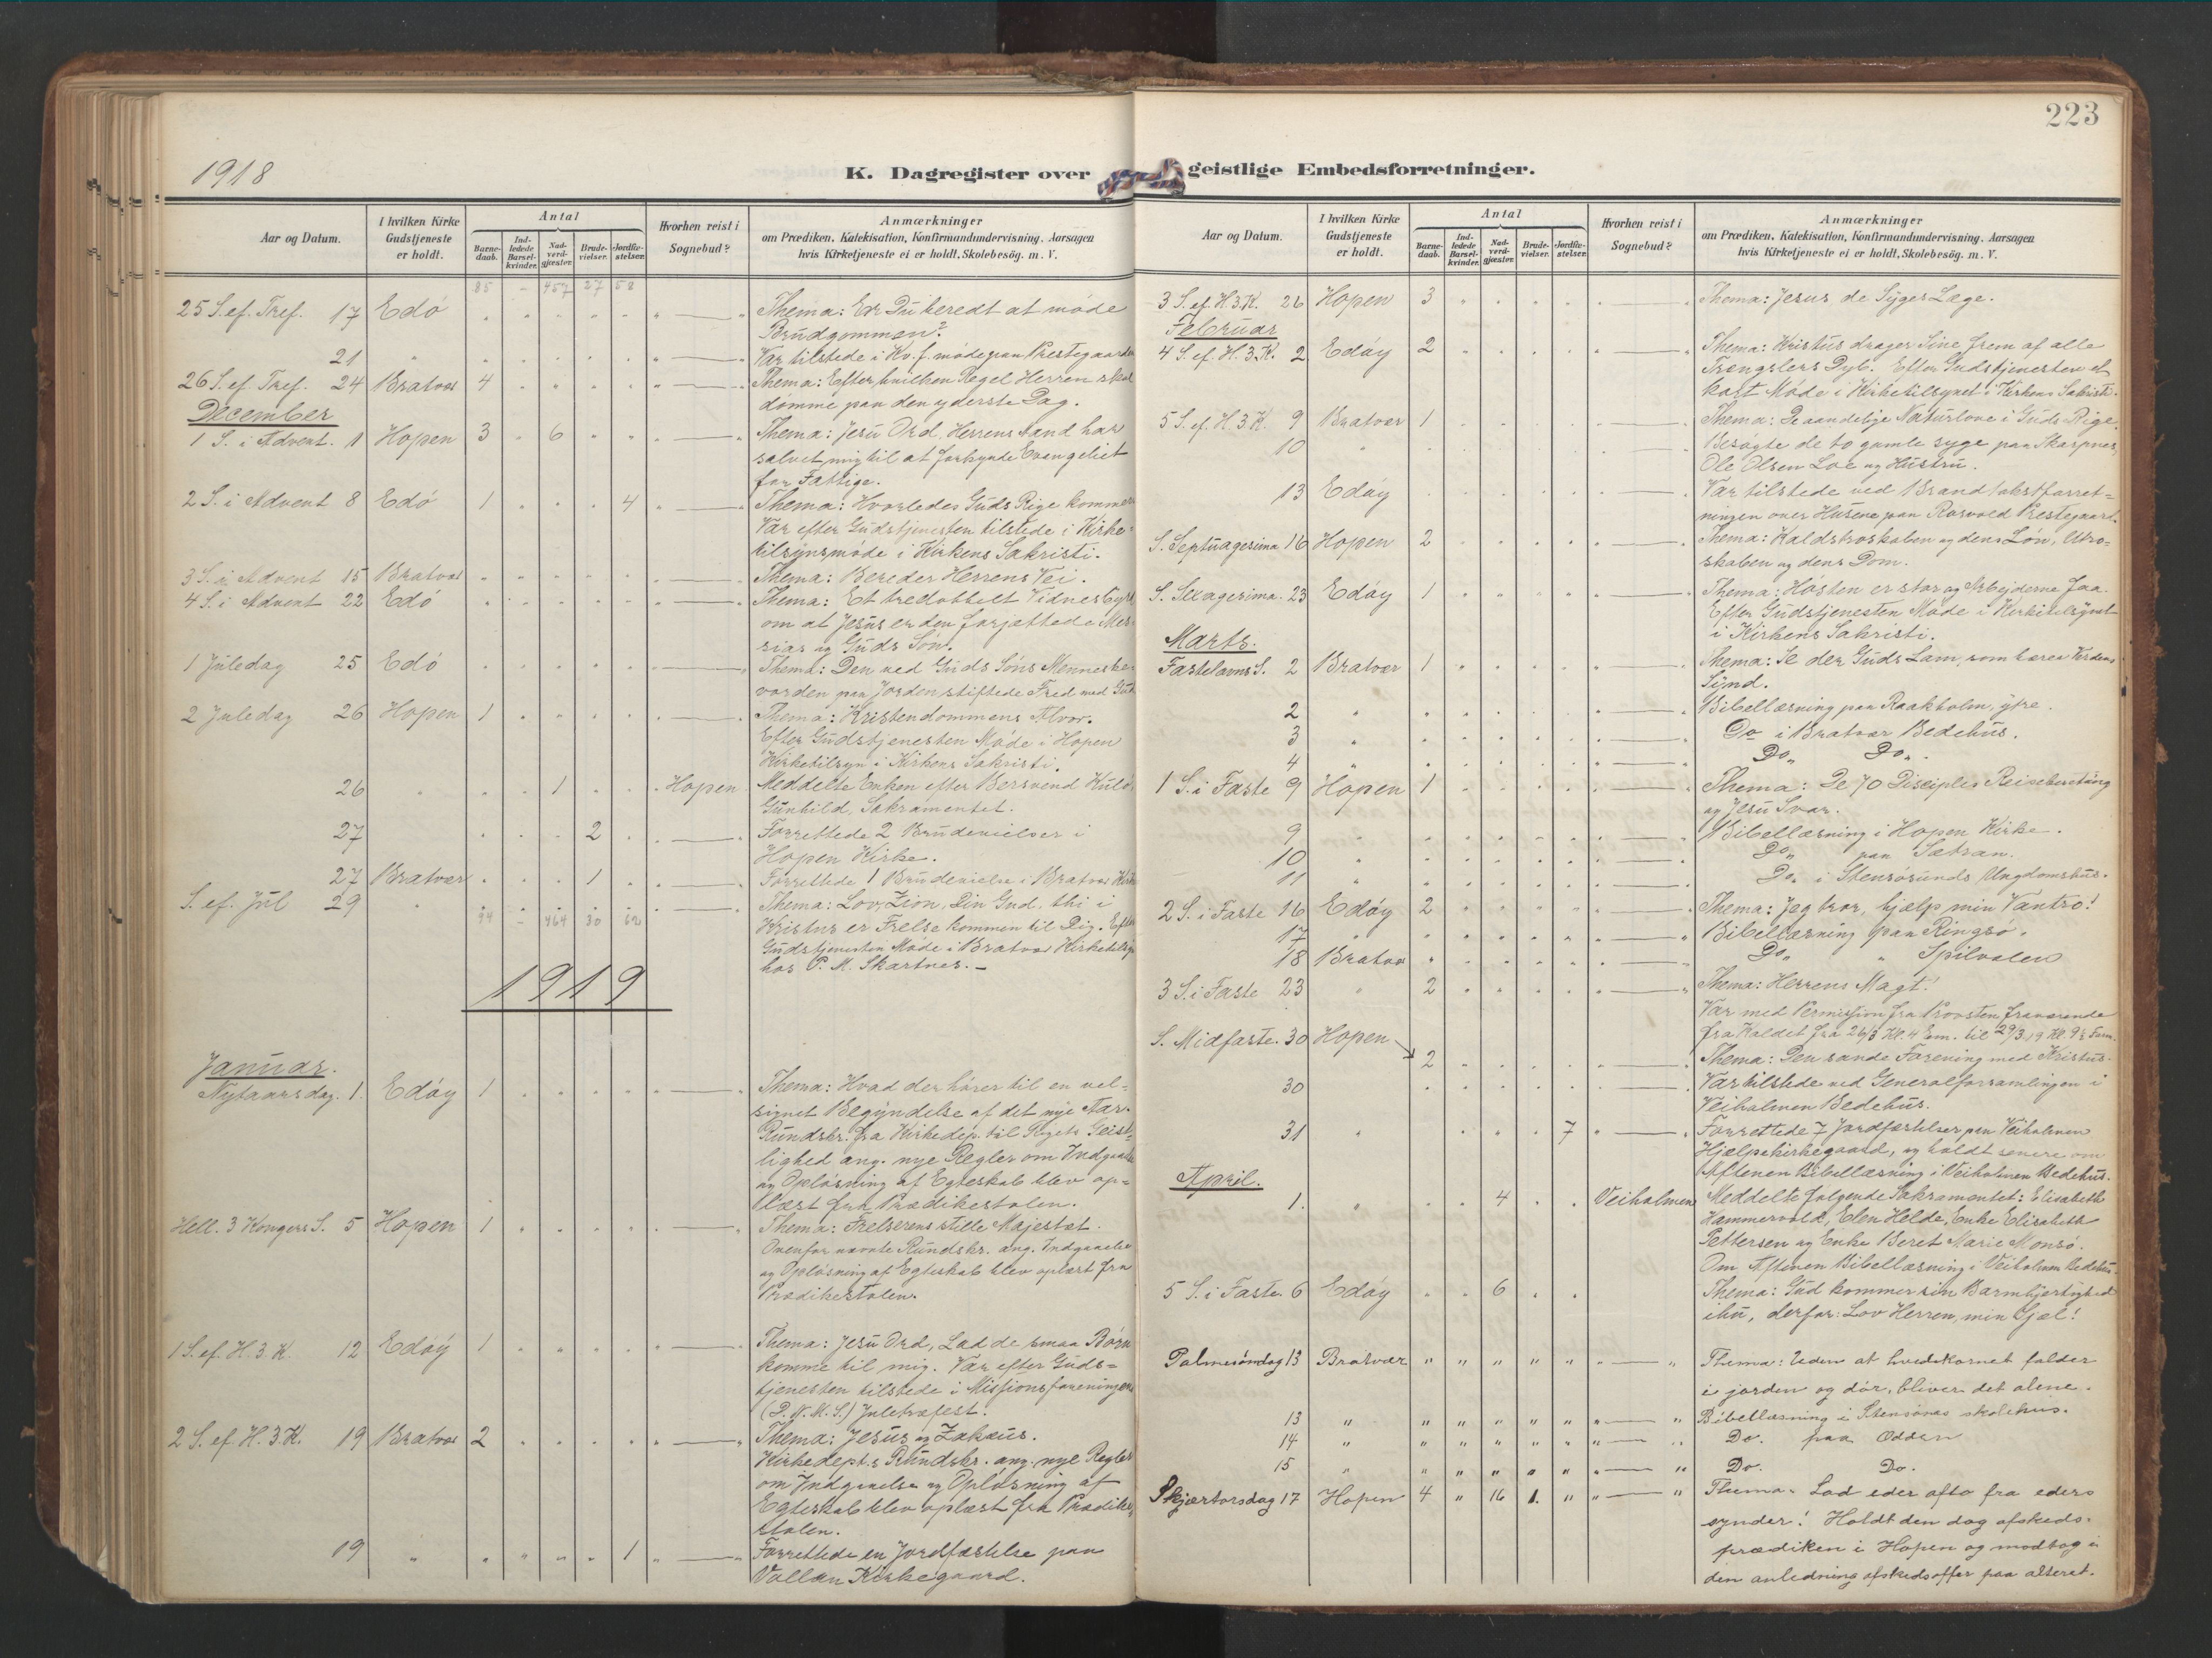 223
1918
K. Dagregister over geistlige Embedsforretninger.
Aar og Datum.
I hvilken Kirke Gudstjeneste er holdt.
Antal
Barne-daab.
Ind-ledede Barsel-kvinder.
Nad-verd-gjæster.
Brude-vielser.
Jordfæ-stelser.
Hvorhen reist i Sognebud?
Anmærkninger
om Prædiken, Katekisation, Konfirmandundervisning, Aarsagen
hvis Kirketjeneste ei er holdt, Skolebesög. m. V.
85 - 457 27 58
25 S. ef. Tref. 17 Edö Thema: Er Du beredt at møde
Brudgommen?
21 " Var tilstede i Kv. f. møde paa Prestegaarden
26 S. ef. Tref. 24 Bratvær 4 Thema: Efter hvilken Regel Herren skal
dömme paa den yderste Dag.
December
1 S. i Advent. 1 Hopen 3 6 Thema: Jesu Ord, Herrens Aand har
salvet mig til at forkynde Evangeliet
for Fattige.
2 S. i Advent 8 Edö 1 4 Thema: Hvorledes Guds Rige kommer
Var efter Gudstjenesten tilstede i Kirke-
tilsynsmøde i Kirkens Sakristi.
3 S. i Advent 15 Bratvær Thema: Bereder Herrens Vei.
4 S. i Advent 22 Edö Thema: Et tredobbelt Vidnesbyrd
om at Jesus er den forjættede Mes-
sias og Guds Søn.
1 Juledag 25 Edö Thema: Den ved Guds Søns Menneske-
vorden paa Jorden stiftede Fred med Gud
2 Juledag 26 Hopen 1 Thema: Kristendommens Alvor.
Efter Gudstjenesten Møde i Hopen
Kirketilsyn i Kirkens Sakristi.
26 " 1 Hopen Meddelte Enken efter Bersvend
Gunhild, Sakramentet.
27 2 Forrettede 2 Brudevielser i
Hopen Kirke.
27 Bratvær 1 Forrettede 1 Brudevielse i Bratvær Kirke
S. ef. Jul 29 " Thema: Lov, Zion, Din Gud, thi i
94 - 464 30 62 Kristus er Frelse kommen til Dig. Efter
Gudstjenesten Møde i Bratvær Kirketilsyn
hos P. M. Skartnes. -
1919
Januar.
Nytaarsdag. 1. Edøy 1 Thema: Hvad der hører til en vel-
signet Begyndelse af det nye Aar.
Rundskr. fra Kirkedep. til Rigets Geist-
lighed ang. nye Regler om Indgaaelse
og Opløsning af Egteskab blev op-
læst fra Prædikestolen.
Hell. 3 Kongers S. 5 Hopen 1 Thema: Frelserens stille Majestæt.
Ovenfor nævnte Rundskr. ang. Indgaaelse
og Opløsning af Egteskab blev oplæst fra
Prædikestolen.
1 S. ef. H. 3. K. 12 Edøy 1 Thema: Jesu Ord, Lad de smaa Børn
komme til mig. Var efter Guds-
tjenesten tilstede i Missionsforeningens
(D. N. M. S.) Juletræfest.
2 S. ef. H. 3. K. 19 Bratvær 2 Thema: Jesus og Zakæus.
Kirkedept.s Rundskr. ang. nye Regler
om Indgaaelse og Opløsning af
Egteskab blev oplæst fra Prædike-
stolen.
19 " 1 Forrettede en Jordfæstelse paa
Vallen Kirkegaard.
Aar og Datum.
I hvilken Kirke Gudstjeneste er holdt.
Antal
Barne-daab.
Ind-ledede Barsel-kvinder.
Nad-verd-gjæster.
Brude-vielser.
Jordfæ-stelser.
Hvorhen reist i Sognebud?
Anmærkninger
om Prædiken, Katekisation, Konfirmandundervisning, Aarsagen
hvis Kirketjeneste ei er holdt, Skolebesög. m. V.
3 S. ef. H. 3. K. 26 Hopen 3 Thema: Jesus, de Syges Læge.
Februar
4 S. ef. H. 3. K. 2 Edøy 2 Thema: Kristus drager Sine frem af alle
Trængslers Dyb. Efter Gudstjenesten et
kort Møde i Kirketilsynet i Kirkens Sakristi.
5 S. ef. H. 3. K. 9 Bratvær 1 Thema: De aandelige Naturlove i Guds Rige.
10 " Besøgte de to gamle syge paa Skarpnes,
Ole Olsen Loe og Hustru.
13 Edøy Var tilstede ved Brandtakstforret-
ningen over Husene paa Rosvold Prestegaard.
S. Septuagesima 16 Hopen 2 Thema: Kaldstroskaben og dens Løn, Utro-
skaben og dens Dom.
S. Sexagesima. 23 Edøy 1 Thema: Høsten er stor og Arbejderne faa.
Efter Gudstjenesten Møde i Kirketilsynet
i Kirkens Sakristi.
Marts.
Fastelavns S. 2 Bratvær 1 Thema: Se der Guds Lam, som bærer Verdens
Synd.
2 " Bibellæsning paa Raakholm, ytre.
3 " Do i Bratvær Bedehus.
4 " Do. Do.
1 S. i Faste 9 Hopen 1 Thema: De 70 Disciples Reiseberetning
og Jesu Svar.
9 " Bibellæsning i Hopen Kirke.
10 " Do. paa Sætran.
11 " Do. i Stensøsunds Ungdomshus.
2 S. i Faste 16 Edøy 2 Thema: Jeg tror, hjælp min Vantro!
17 " Bibellæsning paa Ringsø.
18 Bratvær Do. " Spilvalen
3 S. i Faste 23 " 2 Thema: Herrens Magt!
Var med Permission fra Provsten fraværende
fra Kaldet fra 26/3 Kl. 4 Em. til 29/3 19 Kl. 9½ Form.
S. Midfaste. 30 Hopen 2 Thema: Den sande Forening med Kristus.
30 Var tilstede ved Generalforsamlingen i
Veiholmen Bedehus.
31 " 7 Forrettede 7 Jordfæstelser paa Veiholmen
Hjælpekirkegaard, og holdt senere om
Aftenen Bibellæsning i Veiholmen Bedehus.
April.
1. " 4 Veiholmen Meddelte følgende Sakramentet: Elisabeth
Hammervold, Elen Helde, Enke Elisabeth
Pettersen og Enke Beret Marie Monsø.
Om Aftenen Bibellæsning i Veiholmen Bedehus.
5 S. i Faste. 6 Edøy 6 Thema: Gud kommer sin Barmhjertighed
ihu, derfor: Lov Herren, min Sjæl!
Palmesøndag 13 Bratvær " " " " " " " Thema: Uden at hvedekornet falder
i jorden og dör, bliver det alene.
13 " " " " " " " " Bibellæsning i Stensønes skolehus.
14 " " " " " " " " Do. paa Odden
15 " " " " " " " " Do. Do.
Skjærtorsdag 17 Hopen 4 " 16 1. " " " Thema: Lad eder afto fra eders
synder! Holdt den dag afskeds-
prædiken i Hopen og modtog i
den anledning afskedsoffer paa alteret.